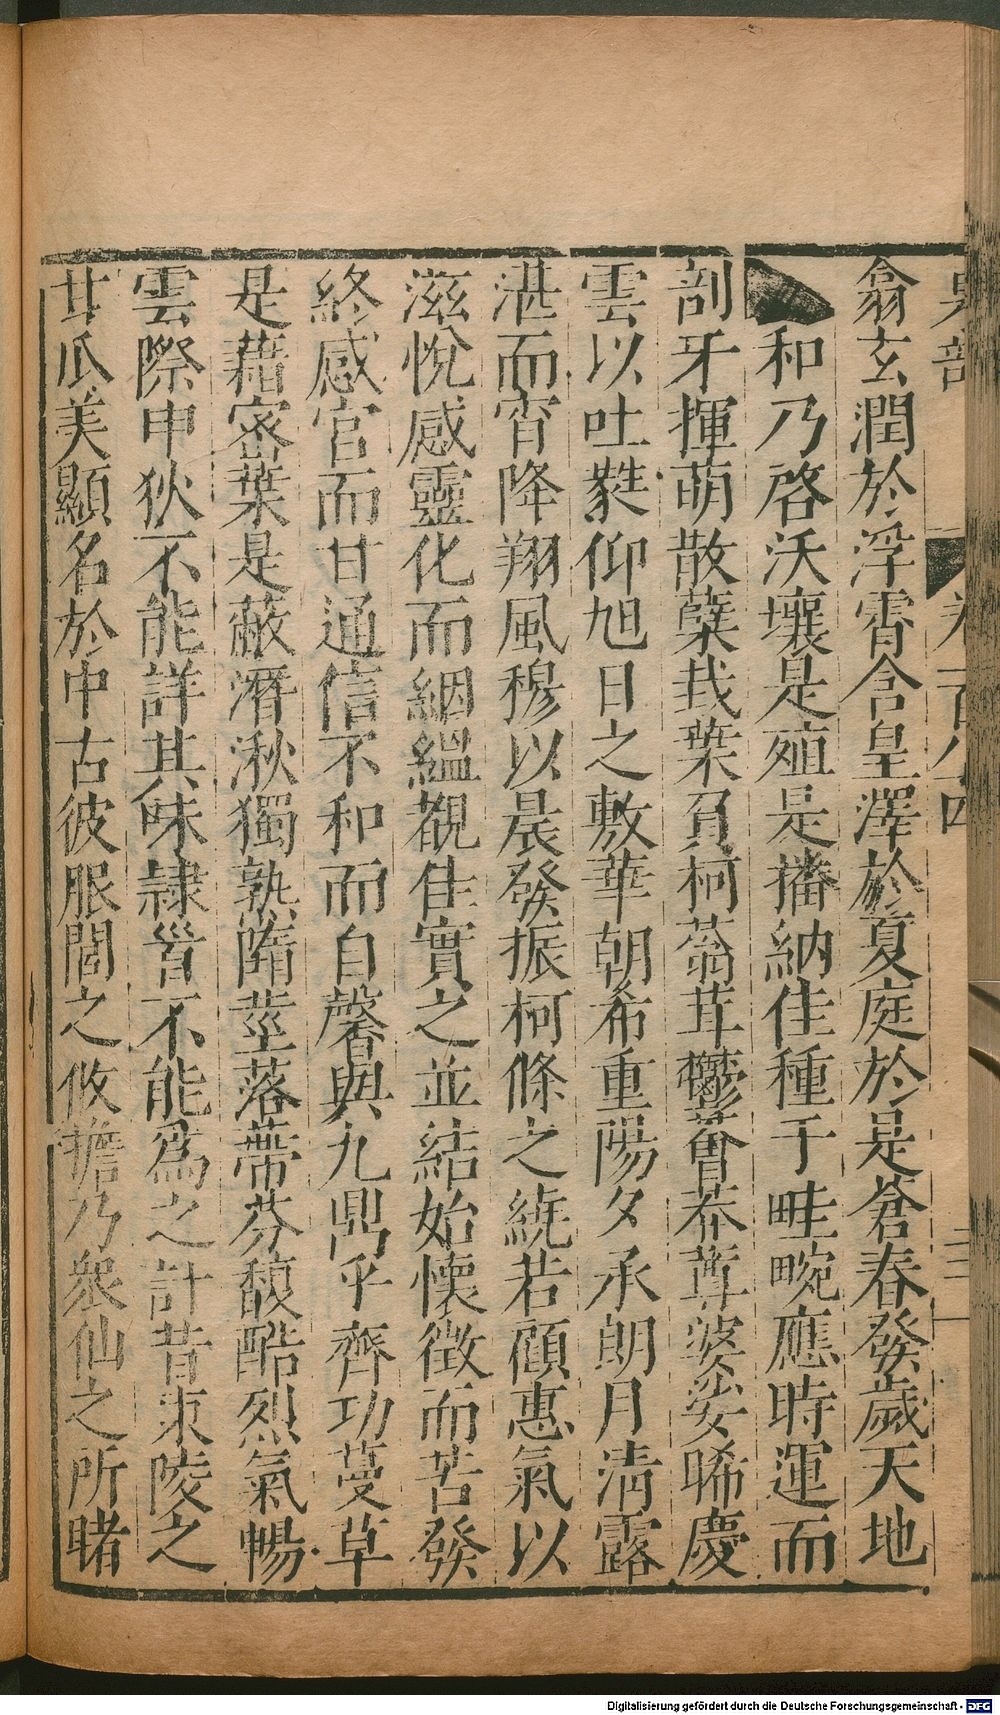 翕玄潤於浮霄含皇澤於夏庭於是蒼春發歲天地
和乃啓沃壤是殖是播納佳種于畦畹應時運而
剖牙揮萌散蘖栽葉負柯蓊茸欝莟蓴婆娑晞慶
雲以吐蕤仰旭日之敷華朝希重陽夕承朗月清露
湛而宵降翔風穆以晨發振柯條之繞若顧惠氣以
滋悅感靈化而絪縕觀佳實之並結始懷徵而苦發
終感宮而甘通信不和而自馨與九鼎乎齊功蔓草
是藉密葉是蔽潛湫獨熟隋莖落蔕芬馥酷烈氣暢
雲際申狄不能詳其味隷首不能爲之計昔東陵之
甘瓜美顯名於中古彼服閭之攸擔乃衆仙之所睹
卷一百八四
Digitalisierung gefördert durch die Deutsche Forschungsgemeinschaft - DFG